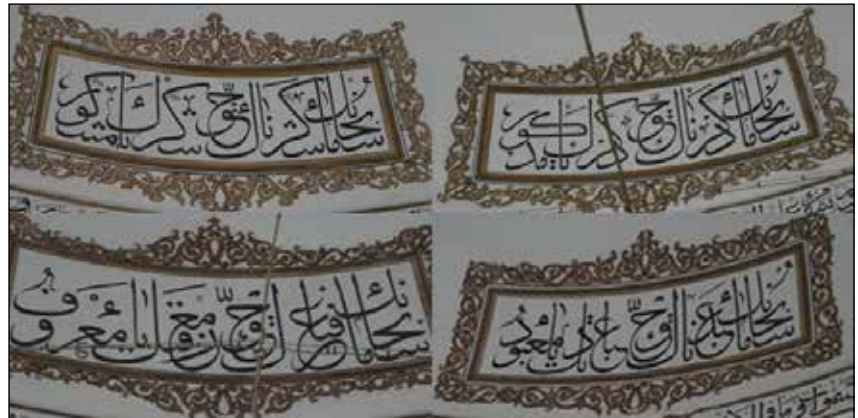 سبحانك ما ذكرناك حق ذكرك يا مذكور
سبحانك ما شكرناك حق شكرك يا مشكور
سبحانك ما عبدناك حق عبادتك يا معبود
سبحانك ما عرفناك حق معرفتك يا معروف